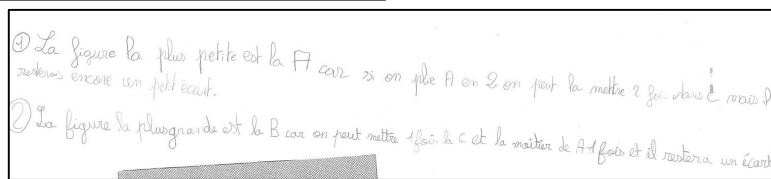 ① La figure la plus petite est la A car si on plie A en 2 on peut la mettre 2 fois dans C mais il
resteras encore un petit écart.
② La figure la plus grande est la B car on peut mettre 1 fois la C et la moitier de A 1 fois et il restera un écart